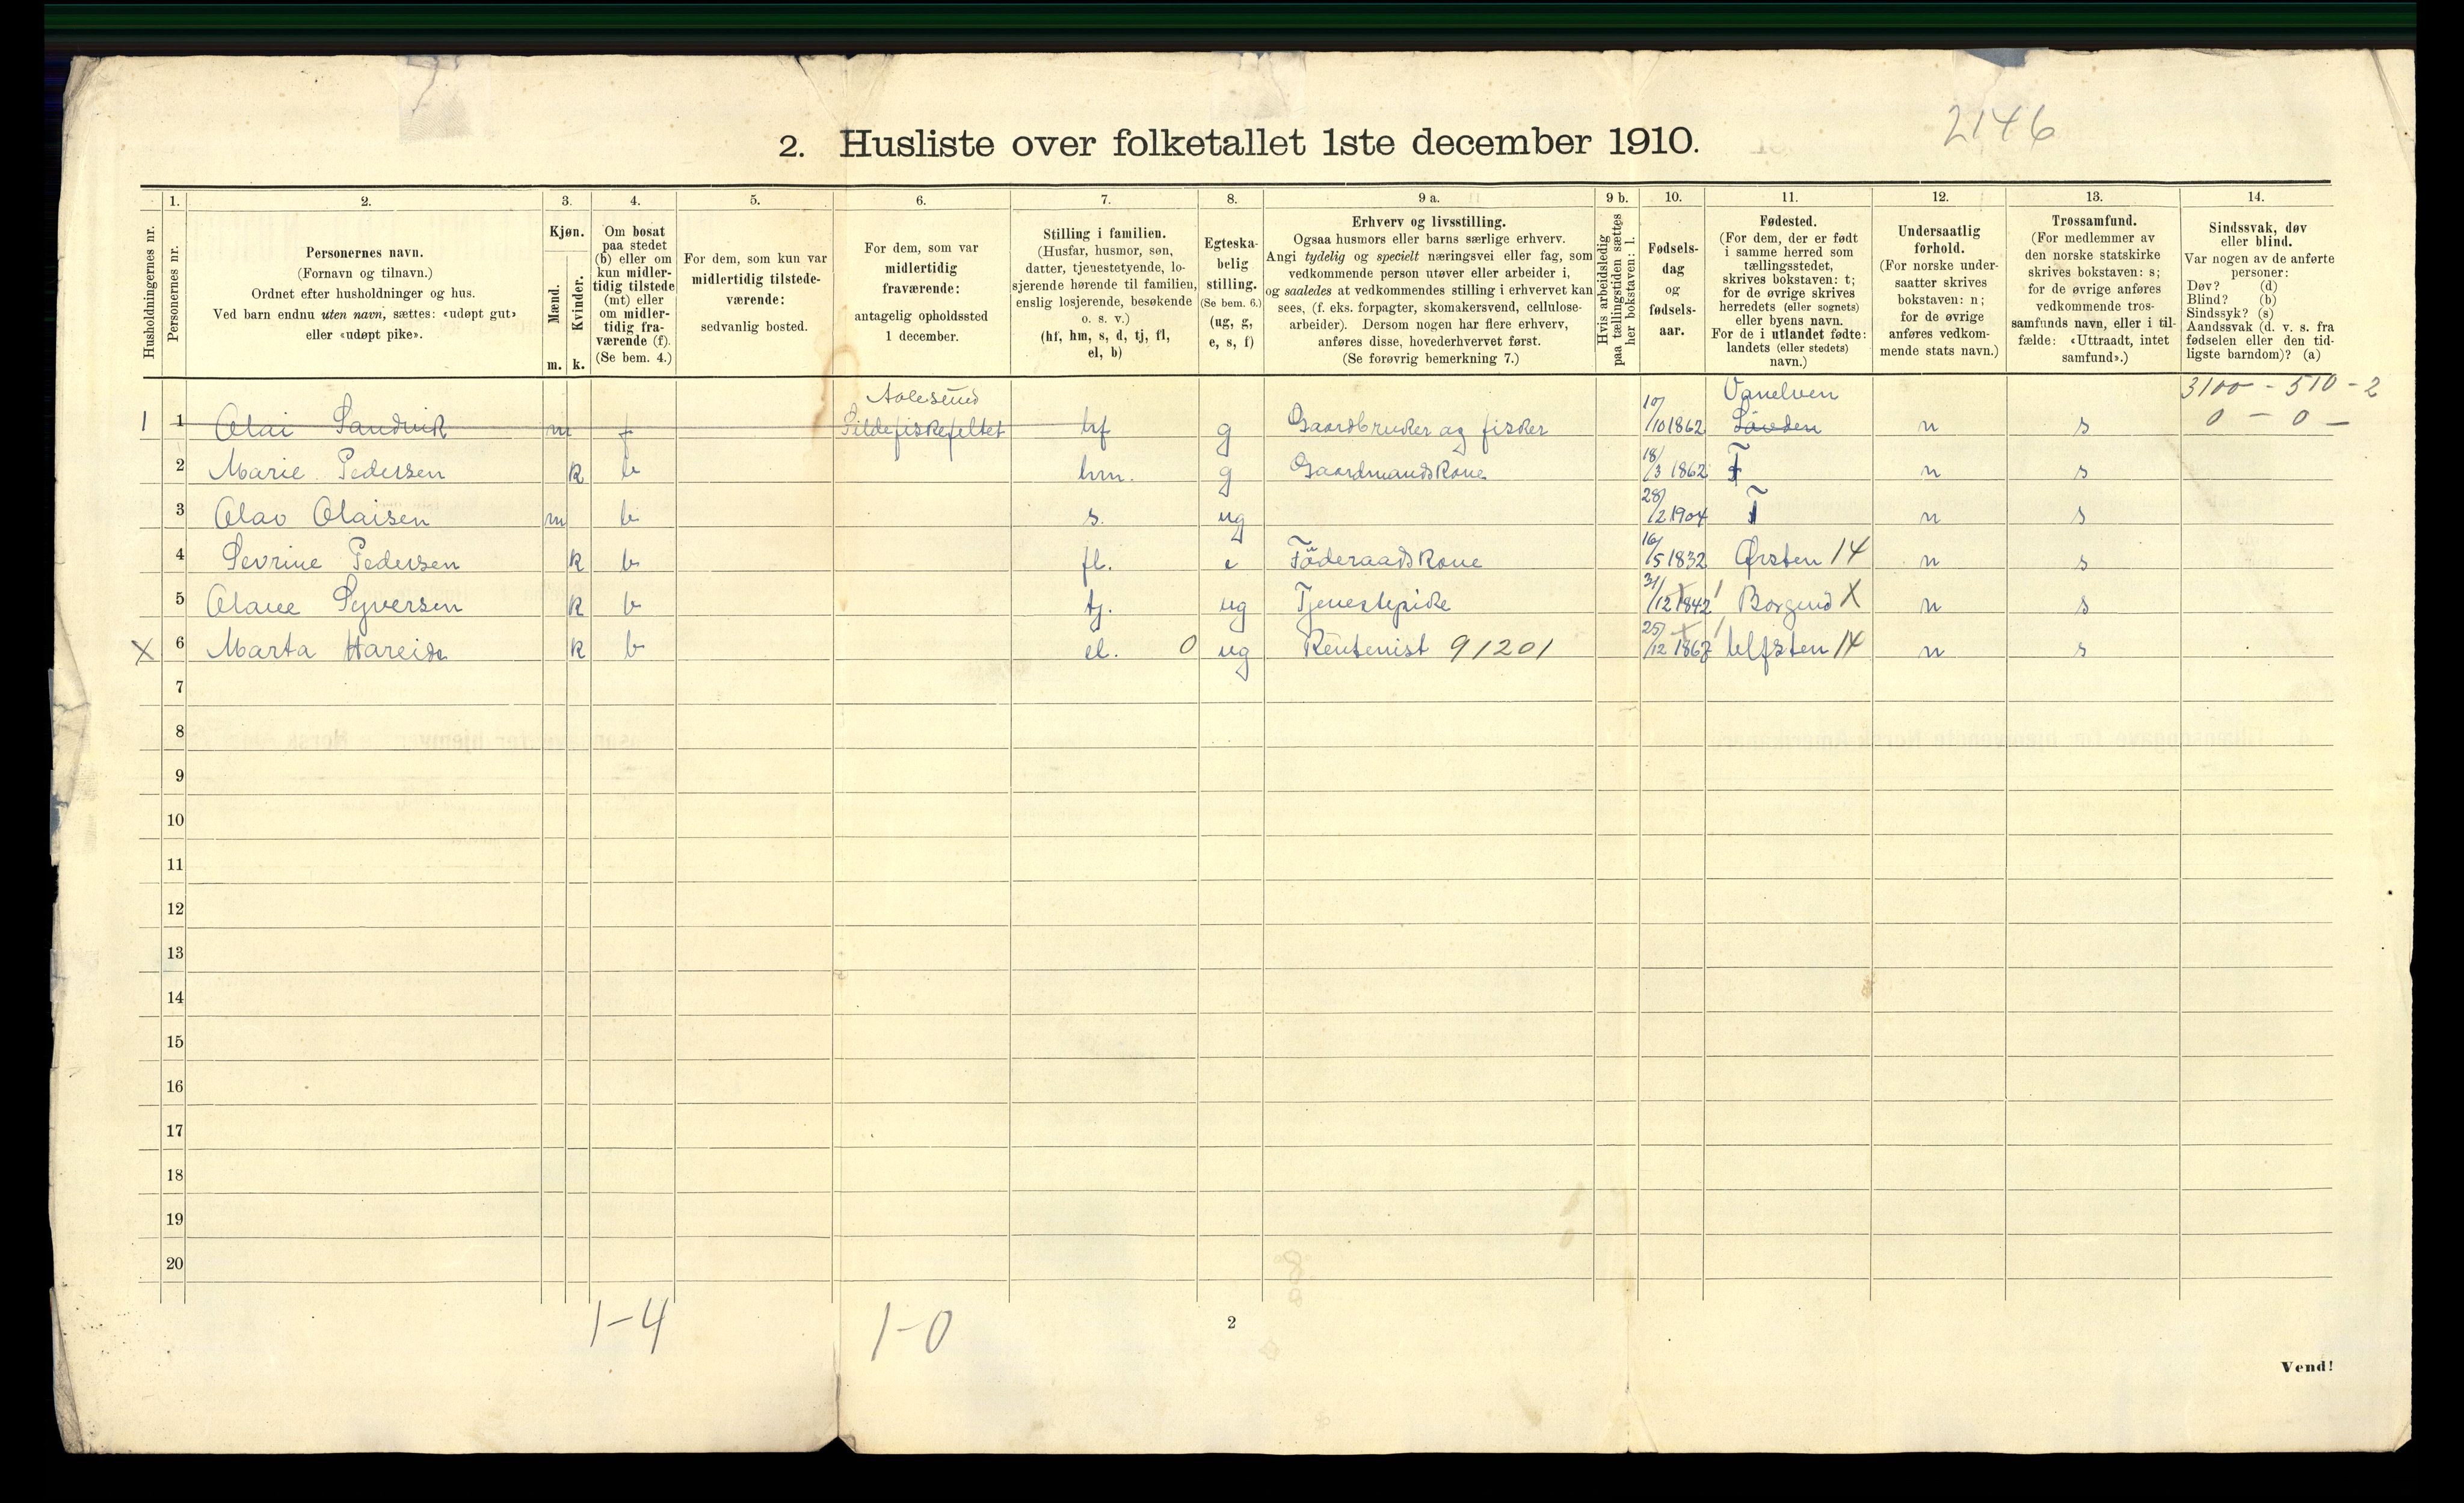 2146
2. Husliste over folketallet 1ste december 1910.
Husholdningernes nr.
1.
Personernes nr.
2.
Personernes navn.
(Fornavn og tilnavn.)
Ordnet efter husholdninger og hus.
Ved barn endnu uten navn, sættes: «udøpt gut»
eller «udøpt pike».
3.
Kjøn.
Mænd.
Kvinder.
m. k.
4.
Om bosat
paa stedet
(b) eller om
kun midler-
tidig tilstede
(mt) eller
om midler-
tidig fra-
værende (f).
(Se bem. 4.)
5.
For dem, som kun var
midlertidig tilstede-
værende:
sedvanlig bosted.
6.
For dem, som var
midlertidig
fraværende:
antagelig opholdssted
1 december.
7.
Stilling i familien.
(Husfar, husmor, søn,
datter, tjenestetyende, lo-
sjerende hørende til familien,
enslig losjerende, besøkende
o. s. v.)
(hf, hm, s, d, tj, fl,
el, b)
8.
Egteska-
belig
stilling.
(Se bem. 6.)
(ug, g,
e, s, f)
9 a.
Erhverv og livsstilling.
Ogsaa husmors eller barns særlige erhverv.
Angi tydelig og specielt næringsvei eller fag, som
vedkommende person utøver eller arbeider i,
og saaledes at vedkommendes stilling i erhvervet kan
sees, (f. eks. forpagter, skomakersvend, cellulose-
arbeider). Dersom nogen har flere erhverv,
anføres disse, hovederhvervet først.
(Se forøvrig bemerkning 7.)
9 b.
Hvis arbeidsledig
paa tællingstiden sættes
her bokstaven: l.
10.
Fødsels-
dag
og
fødsels-
aar.
11.
Fødested.
(For dem, der er født
i samme herred som
tællingsstedet,
skrives bokstaven: t;
for de øvrige skrives
herredets (eller sognets)
eller byens navn.
For de i utlandet fødte:
landets (eller stedets)
navn.)
12.
Undersaatlig
forhold.
(For norske under-
saatter skrives
bokstaven: n;
for de øvrige
anføres vedkom-
mende stats navn.)
13.
Trossamfund.
(For medlemmer av
den norske statskirke
skrives bokstaven: s;
for de øvrige anføres
vedkommende tros-
samfunds navn, eller i til-
fælde: «Uttraadt, intet
samfund».)
14.
Sindssvak, døv
eller blind.
Var nogen av de anførte
personer:
Døv? (d)
Blind? (b)
Sindssyk? (s)
Aandssvak (d. v. s. fra
fødselen eller den tid-
ligste barndom)? (a)
Aalesund Vanelven 3100 - 510 - 2
1 1 Olai Sandvik m f Sildefiskefeltet hf g Gaardbruker og fisker 10/10 1862 n s 0 - 0 -
2 Marie Pedersen k b hm. g Gaardmandskone 18/3 1862 T n s
3 Olav Olaisen m b s. ug 28/2 1904 T n s
4 Sevrine Pedersen k b fl. e Föderaadskone 16/5 1832 Ørsten 14 n s
5 Olave Syversen k b tj. ug Tjenestepike 31/12 1842 Borgund X n s
X 6 Marta Hareide k b el. 0 ug Rentenist 91201 25/12 1867 Ulfsten 14 n s
7
8
9
10
11
12
13
14
15
16
17
18
19
20
1-4 1-0
2
Vend!